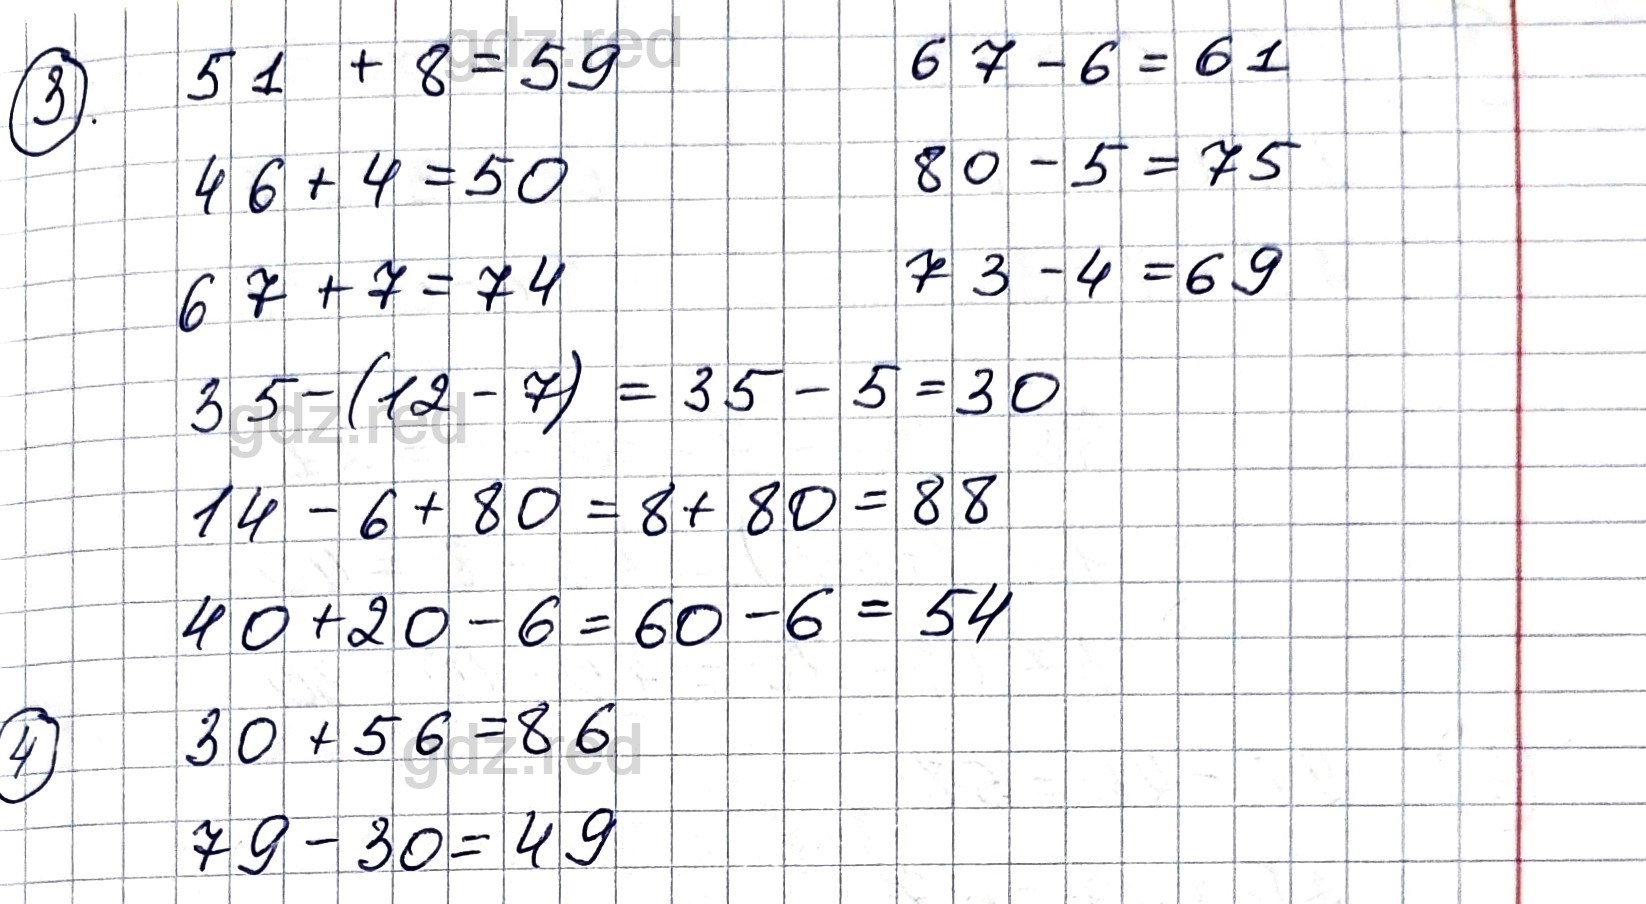 3. 51 + 8 = 59 67 - 6 = 61
46 + 4 = 50 80 - 5 = 75
67 + 7 = 74 73 - 4 = 69
35 - (12 - 7) = 35 - 5 = 30
14 - 6 + 80 = 8 + 80 = 88
40 + 20 - 6 = 60 - 6 = 54
4 30 + 56 = 86
79 - 30 = 49
gdz.red
gdz.red
gdz.red